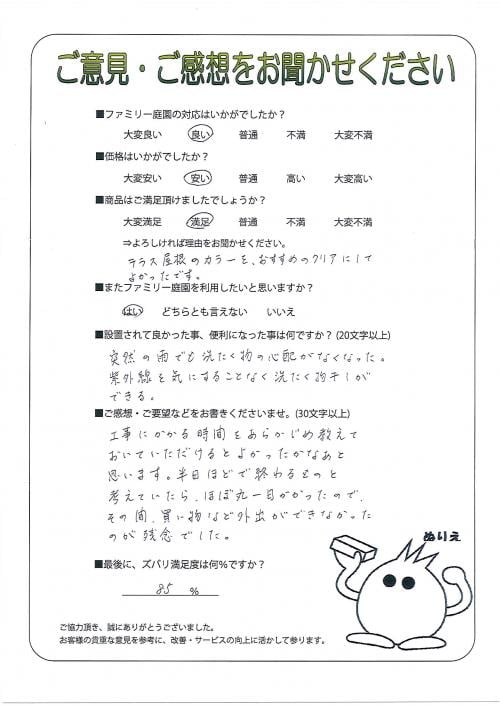 ご意見・ご感想をお聞かせください
■ファミリー庭園の対応はいかがでしたか？
大変良い 良い 普通 不満 大変不満
■価格はいかがでしたか？
大変安い 安い 普通 高い 大変高い
■商品はご満足頂けましたでしょうか？
大変満足 満足 普通 不満 大変不満
⇒よろしければ理由をお聞かせください。
テラス屋根のカラーを、おすすめのクリアにして
よかったです。
■またファミリー庭園を利用したいと思いますか？
はい どちらとも言えない いいえ
■設置されて良かった事、便利になった事は何ですか？(20文字以上)
突然の雨でも洗たく物の心配がなくなった。
紫外線を気にすることなく洗たく物干しが
できる。
■ご感想・ご要望などをお書きくださいませ。(30文字以上)
工事にかかる時間をあらかじめ教えて
おいていただけるとよかったかなあと
思います。半日ほどで終わるものと
考えていたら、ほぼ丸一日かかったので、
その間、買い物など外出ができなかった
のが残念でした。
■最後に、ズバリ満足度は何％ですか？
85 %
ぬりえ
ご協力頂き、誠にありがとうございました。
お客様の貴重な意見を参考に、改善・サービスの向上に活かして参ります。